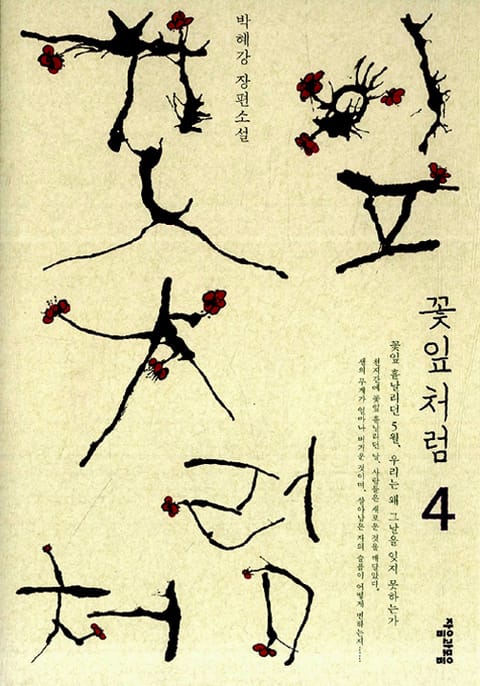 꽃잎처럼
박혜강 장편소설
꽃잎처럼 4
꽃잎 흩날리던 5월, 우리는 왜 그날을 잊지 못하는가
천지간에 꽃잎 흩날리던 날, 사람들은 새로운 것을 깨달았다.
생의 무게가 얼마나 버거운 것이며, 살아남은 자의 슬픔이 어떻게 변하는지……
자음과모음